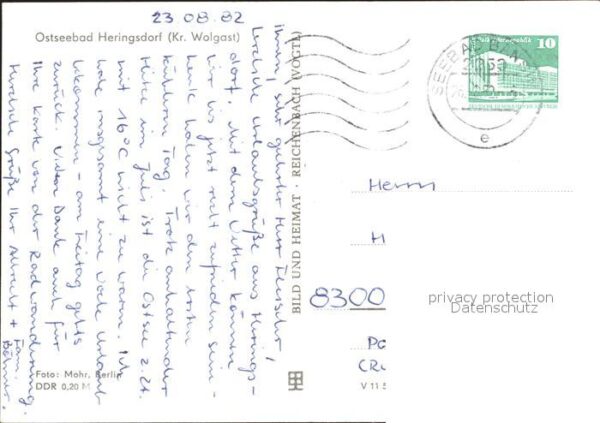 23.08.82
Ostseebad Heringsdorf (Kr. Wolgast)
Ihnen, sehr geehrter Herr
herzliche Urlaubsgrüße aus Herings-
dorf. Mit dem Wetter können
wir bis jetzt recht zufrieden sein -
heute haben wir den ersten
kühleren Tag. Trotz anhaltender
Hitze im Juli ist die Ostsee z. Zt.
mit 16°C nicht zu warm. Ich
habe insgesamt eine Woche Urlaub
bekommen - am Freitag gehts
zurück. Vielen Dank auch für
Ihre Karte von der Radwanderung.
Herzliche Grüße Ihr + Fam.
Foto: Mohr, Berlin
DDR 0,20 M
BILD UND HEIMAT · REICHENBACH (VOGTL)
V 11 5
SEEBAD
e
10
Herrn
H
8300
Po
privacy protection
Datenschutz